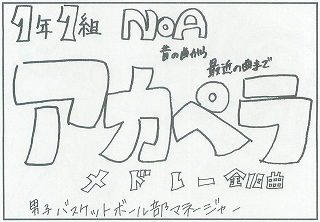 1年1組 NoA
昔の曲から
最近の曲まで
アカペラ
メドレー全18曲
男子バスケットボール部マネージャー